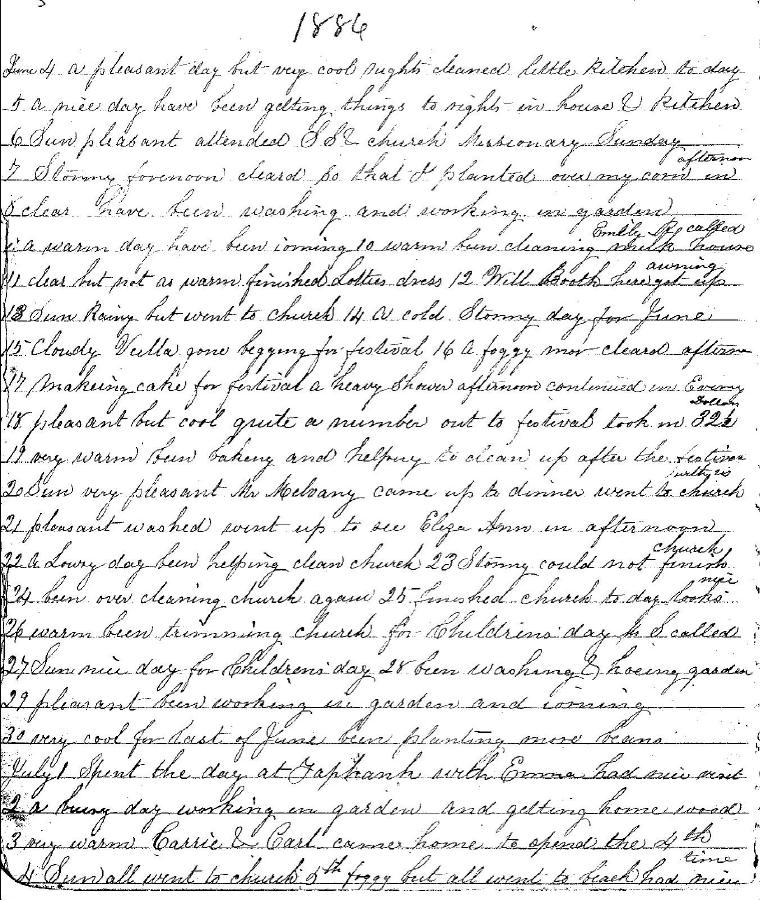 1886
June 4 a pleasant day but very cool nights cleaned little kitchen to day
5 a nice day have been getting things to rights in house & kitchen
6 Sun pleasant attended SS & church Missionary Sunday
afternoon
7 Stormy forenoon cleard so that I planted over my corn in
8 clear have been washing and working in garden
Emily called
a warm day have been ironing 10 warm been cleaning milk house
awning
11 clear but not as warm finished Lotties dress 12 Will Booth here got up
13 Sun Rainy but went to church 14 A cold Stormy day for June
15 Cloudy Vella gone begging for festival 16 A foggy mor cleard aftern
17 Makeing cake for festival a heavy shower afternoon continued in Eveng
Dollars
18 pleasant but cool quite a number out to festival took in 32
19 very warm been bakeing and helping to clean up after the festival
with us
20 Sun very pleasant Mr Melvany came up to dinner went to church
21 pleasant washed went up to see Eliza Ann in afternoon
church
22 A Lowry day been helping clean church 23 Stormy could not finish
nice
24 been over cleaning church again 25 finished church to day looks
26 warm been trimming church for Childrens day S called
27 Sun nice day for Childrens day 28 been washing & hoeing garden
29 pleasant been working in garden and ironing
30 very cool for last of June been planting more beans
July 1 Spent the day at Yaphank with Emma had nice visit
2 a busy day working in garden and getting home wood
3 very warm Carrie & Carl came home to spend the 4th
time
4 Sun all went to church 5th foggy but all went to beach had nice